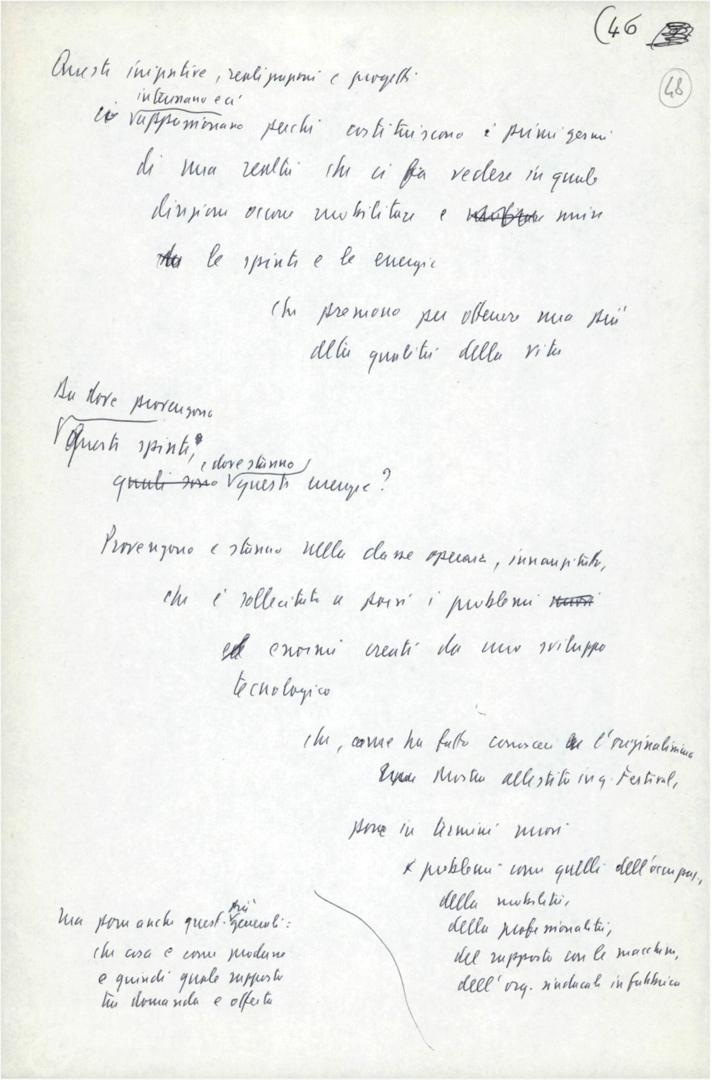 46
48
Queste iniziative, realizzazioni e progetti
interessano e ci
ci appassionano perché costituiscono i primi germi
di una realtà che ci fa vedere in quale
direzione occorre mobilitare e unire
le spinte e le energie
che premono per ottenere una più
alta qualità della vita
Da dove provengono
Queste spinte,
e dove stanno
quali sono queste energie?
Provengono e stanno nella classe operaia, innanzitutto,
che è sollecitata a porsi i problemi nuovi
enormi creati da uno sviluppo
tecnologico
che, come ha fatto conoscere l'originalissima
Mostra allestita in q. Festival,
pone in termini nuovi
problemi come quelli dell'occupaz.,
della mobilità,
della professionalità,
del rapporto con le macchine,
dell'org. sindacale in fabbrica
ma pone anche quest. più generali:
che cosa e come produrre
e quindi quale rapporto
tra domanda e offerta